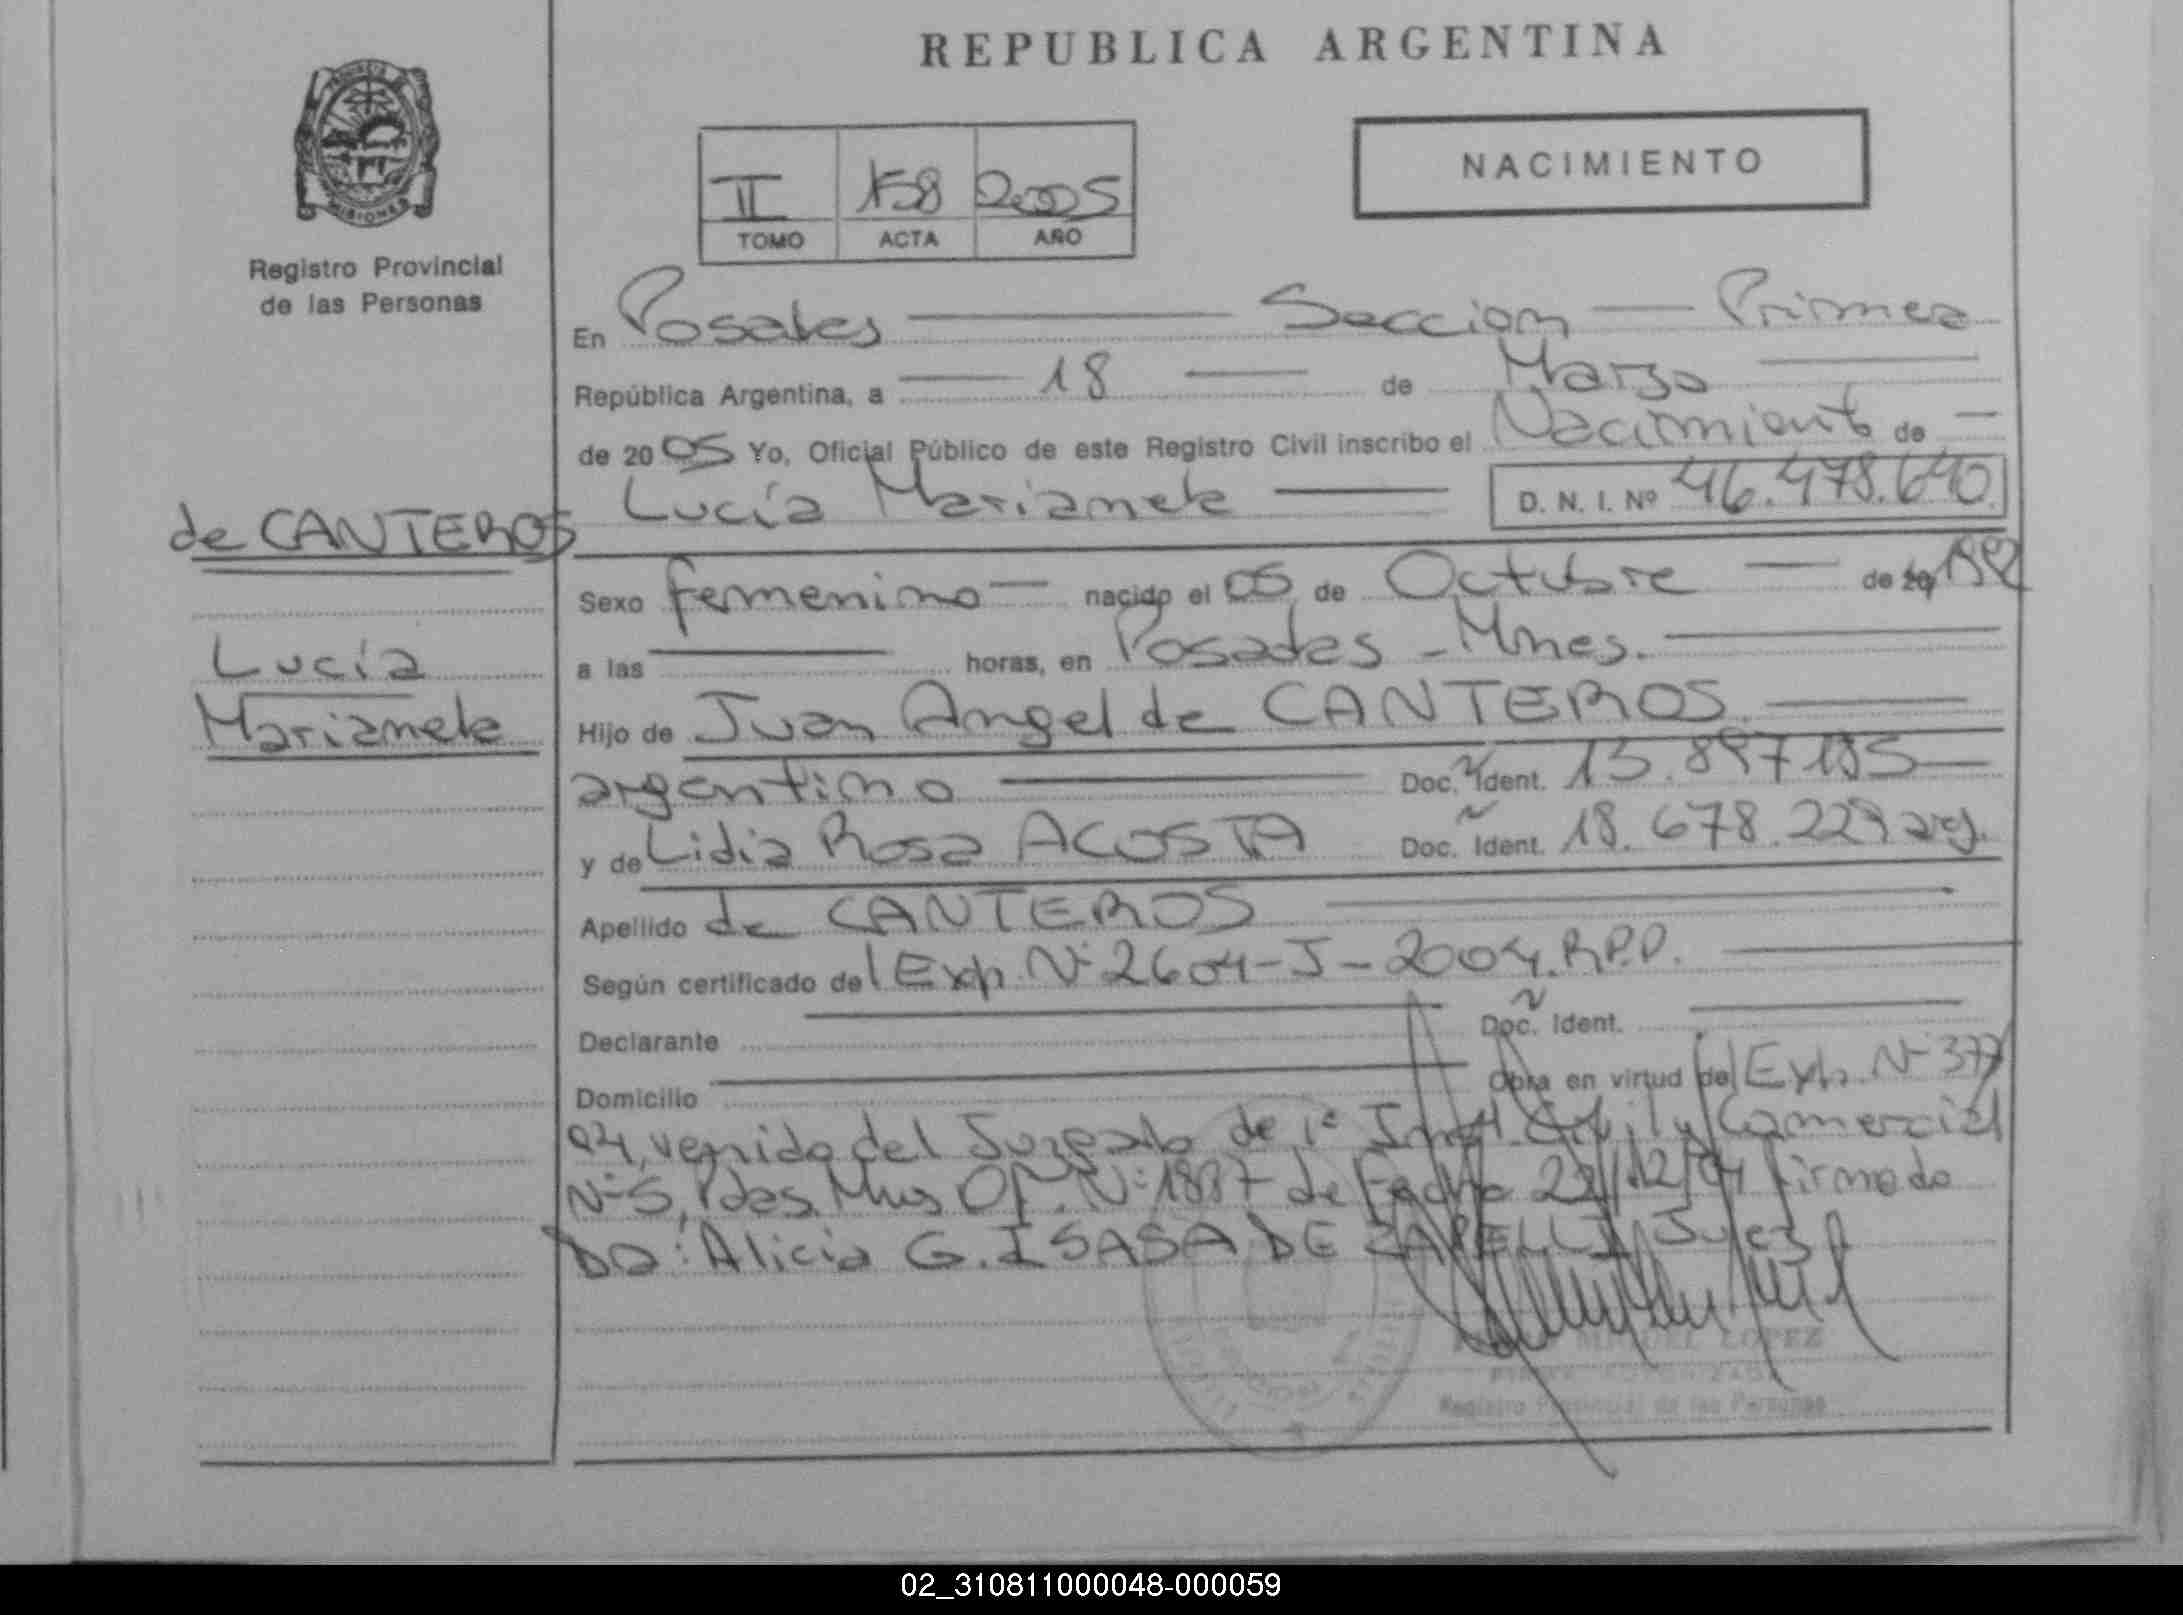 REPUBLICA ARGENTINA
NACIMIENTO
II 158 2005
TOMO ACTA AÑO
MISIONES
Registro Provincial
de las Personas
En Posadas Seccion Primera
República Argentina, a 18 de Marzo
de 2005 Yo, Oficial Público de este Registro Civil inscribo el Nacimiento de
Lucía Marianela D. N. I. Nº 46.478.640
de CANTEROS
Sexo femenino nacido el 05 de Octubre de
Lucía
a las horas, en Posadas - Mnes.
Marianela
Hijo de Juan Angel de CANTEROS
argentino Doc. Ident. 13.897.185
y de Lidia Rosa ACOSTA Doc. Ident. 18.678.229 arg.
Apellido de CANTEROS
Según certificado del Exp. Nº 2604-J-2004.R.P.P.
Declarante Doc. Ident.
Domicilio Obra en virtud del Exp. Nº 377
04, venido del Juzgado de 1ª Inst. Civil y Comercial
Nº 5, Pdas. Mnes Of. Nº 1887 de Fecha 22/12/04 firmado
Dra: Alicia G. ISASA DE ZARELLI, Juez
MIGUEL LOPEZ
Registro Provincial de las Personas
02_310811000048-000059